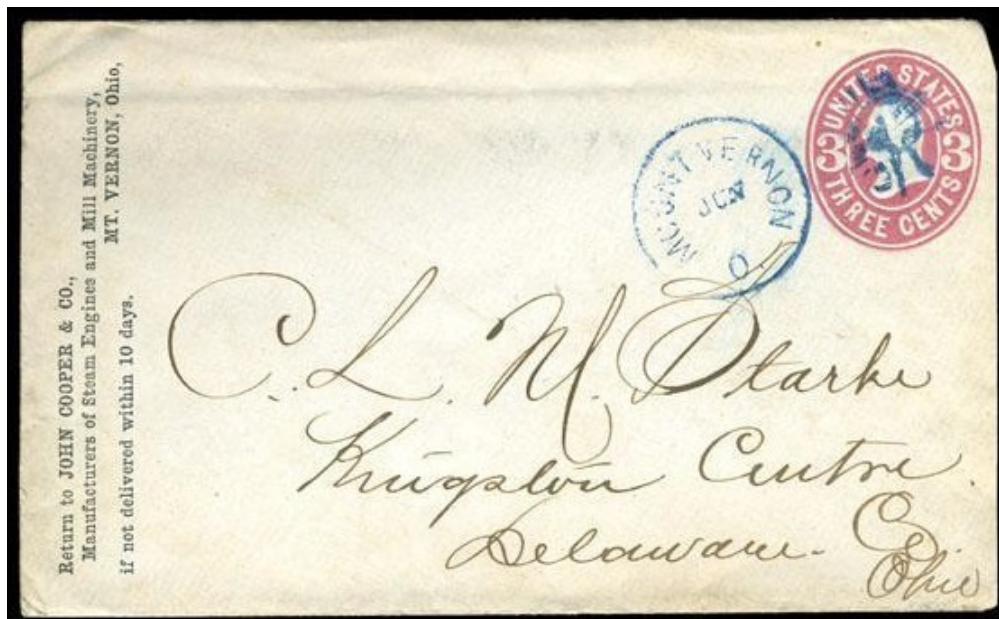 Return to JOHN COOPER & CO.,
Manufacturers of Steam Engines and Mill Machinery,
MT. VERNON, Ohio,
if not delivered within 10 days.
MOUNT VERNON
JUN
O.
UNITED STATES
3 3
THREE CENTS
C. L. M. Starke
Kingston Centre.
Delaware. Co.
Ohio